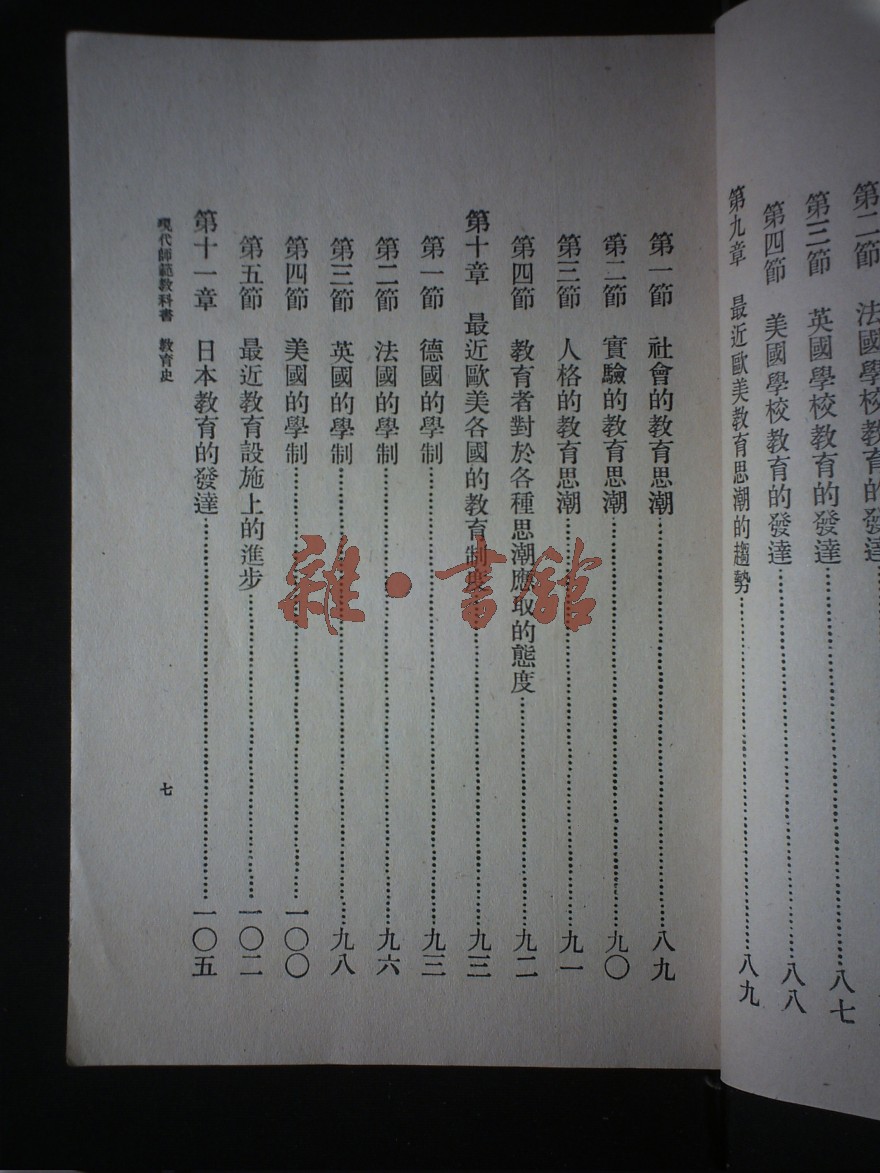 第二節　法國學校教育的發達
第三節　英國學校教育的發達……八七
第四節　美國學校教育的發達……八八
第九章　最近歐美教育思潮的趨勢……八九
第一節　社會的教育思潮……八九
第二節　實驗的教育思潮……九〇
第三節　人格的教育思潮……九一
第四節　教育者對於各種思潮應取的態度……九二
第十章　最近歐美各國的教育制度……九三
第一節　德國的學制……九三
第二節　法國的學制……九六
第三節　英國的學制……九八
第四節　美國的學制……一〇〇
第五節　最近教育設施上的進步……一〇二
第十一章　日本教育的發達……一〇五
現代師範教科書　教育史
七
雜·書館